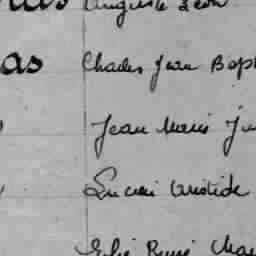 Auguste Léon
as Charles Jean Bapt
Jean Marie Ju
Lucien Aristide
René